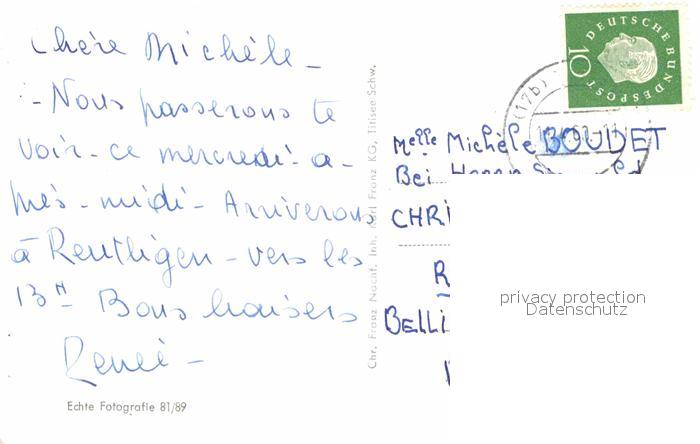 Chère Michèle -
- Nous passerons te
voir - ce mercredi - a-
près - midi - Arriverons
à Reutligen - vers les
13H Bons baisers
René -
Echte Fotografie 81/89
Chr. Franz Nachf. Inh. Karl Franz KG, Titisee-Schw.
DEUTSCHE BUNDESPOST
10
(17b)
Melle Michèle BOUDET
Bei
CHRI
R
BELLI
privacy protection
Datenschutz